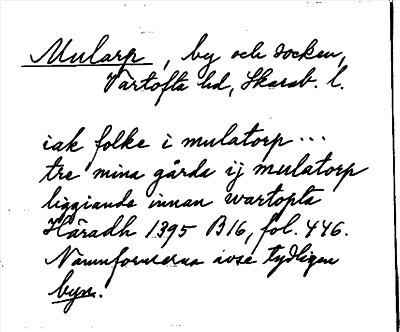 Mularp, by och socken,
Vartofta hd, Skarab. l.
iak folke i mulatorp ...
tre mina gårda ij mulatorp
liggiande innan wartopta
Häradh 1395 B16, fol. 446.
Namnformerna avse tydligen
byn.